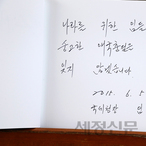 나라를 위한 임들의
숭고한 애국충정은
잊지 않겠습니다
2018. 6. 5
세정신문